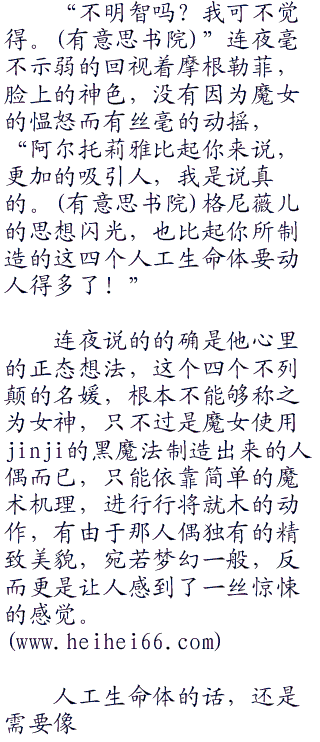 “不明智吗？我可不觉
得。(有意思书院)”连夜毫
不示弱的回视着摩根勒菲，
脸上的神色，没有因为魔女
的愠怒而有丝毫的动摇，
“阿尔托莉雅比起你来说，
更加的吸引人，我是说真
的。(有意思书院)格尼薇儿
的思想闪光，也比起你所制
造的这四个人工生命体要动
人得多了！”
连夜说的的确是他心里
的正态想法，这个四个不列
颠的名媛，根本不能够称之
为女神，只不过是魔女使用
jinji的黑魔法制造出来的人
偶而已，只能依靠简单的魔
术机理，进行行将就木的动
作，有由于那人偶独有的精
致美貌，宛若梦幻一般，反
而更是让人感到了一丝惊悚
的感觉。
(www.heihei66.com)
人工生命体的话，还是
需要像